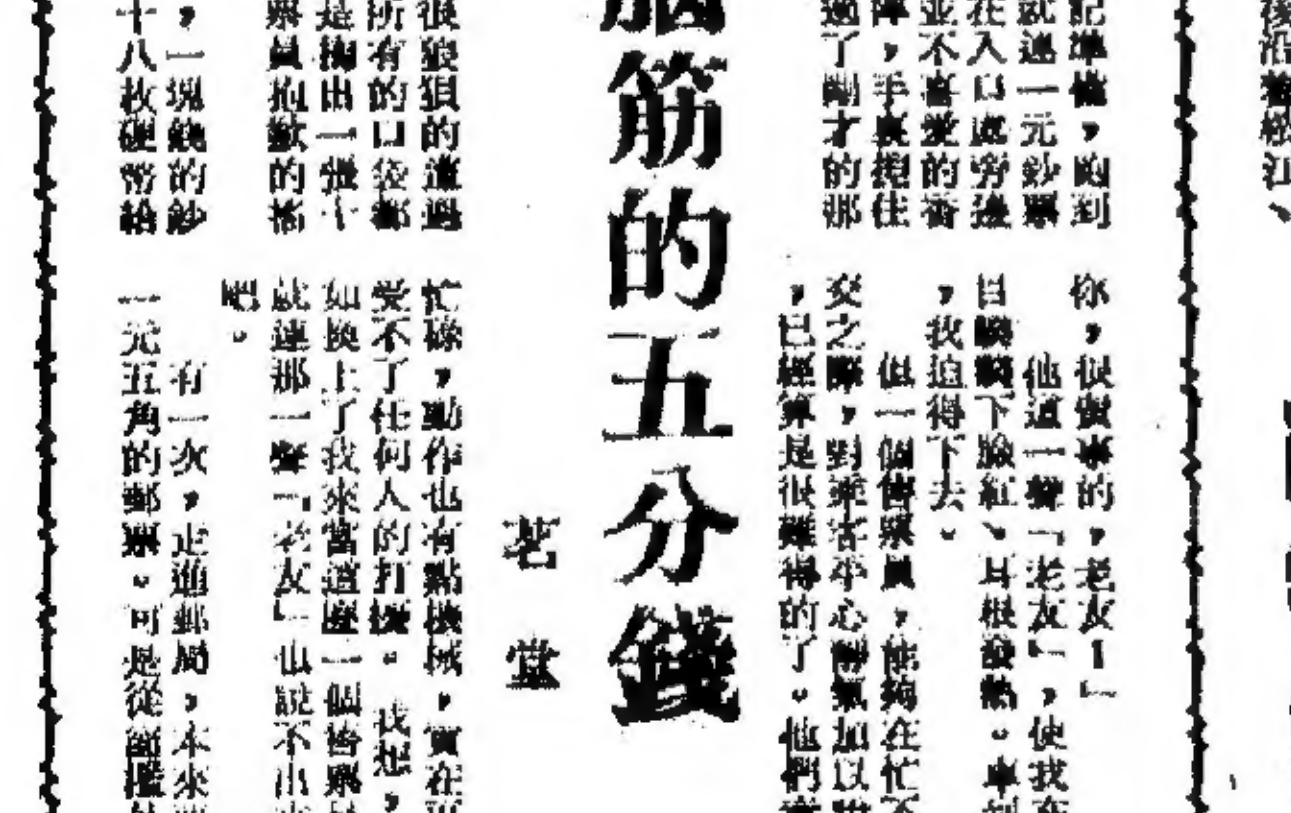 後沿着松江、
記準備，跑到
就遞一元鈔票
在入口處旁邊
並不喜愛的香
陣，手裏抱住
過了剛才的那
你，很懂事的，老友！」
他道一聲「老友」，使我在
目睽睽下臉紅、耳根發熱。車到
，我追得下去。
但一個售票員，能夠在忙不
交之際，對乘客平心靜氣加以
，已經算是很難得的了。他們
腦筋的五分錢
茗堂
很狼狽的
所有的口袋都
是掏出一張十
票員抱歉的
，一塊錢的鈔
十八枚硬幣給
忙碌，動作也有點機械，實在
受不了任何人的打擾。我想，
如換上了我來當這麼一個售票
就連那一聲「老友」也說不出
吧。
有一次，走進郵局，本來
一元五角的郵票。可是從